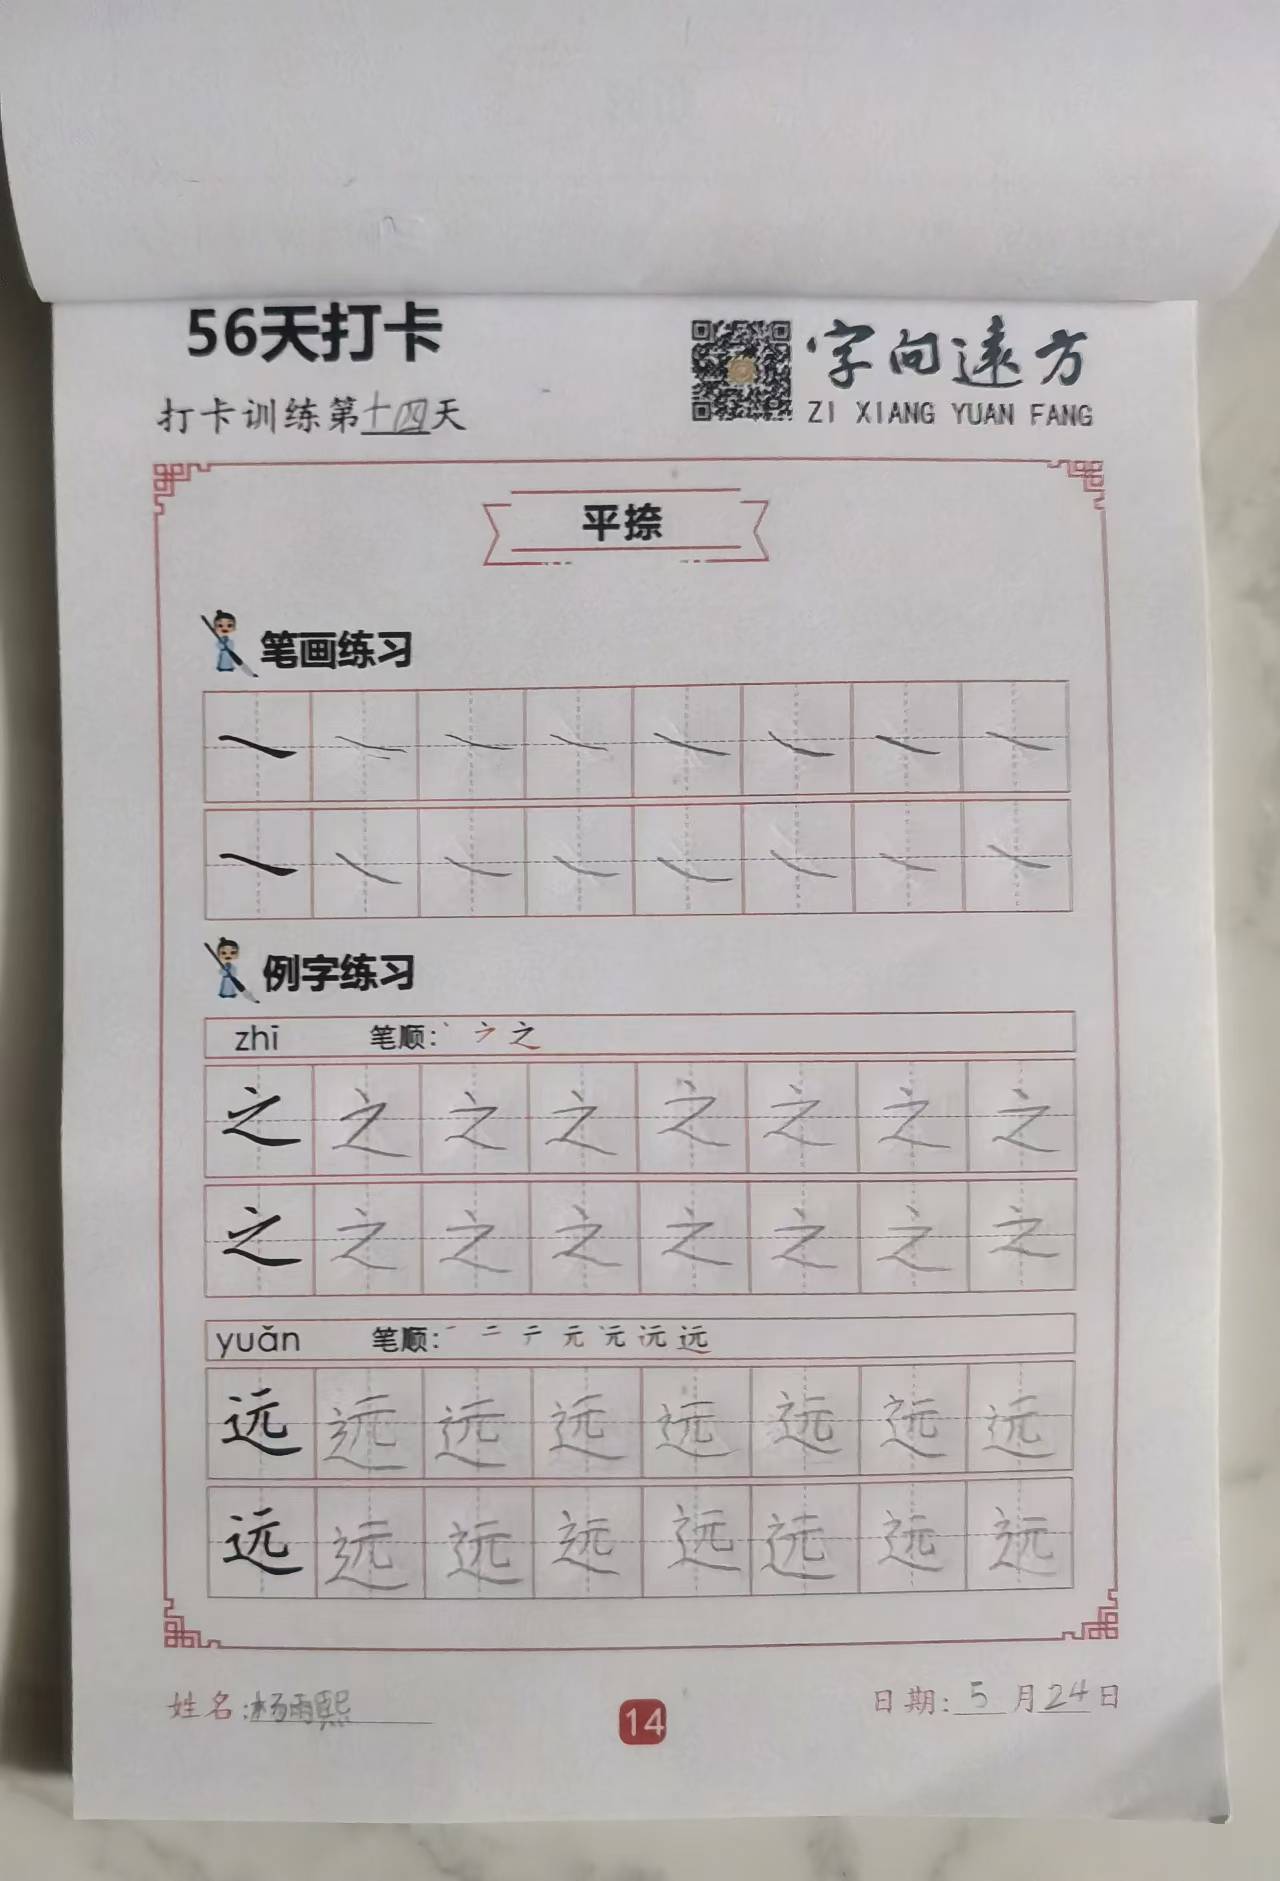 56天打卡
字向远方
ZI XIANG YUAN FANG
打卡训练第十四天
平捺
笔画练习
例字练习
zhī 笔顺: 丶 ㇇ 之
之 之 之 之 之 之 之 之
之 之 之 之 之 之 之 之
yuǎn 笔顺: 一 二 テ 元 沅 远
远 远 远 远 远 远 远 远
远 远 远 远 远 远 远 远
姓名:杨雨熙
14
日期: 5 月 24 日